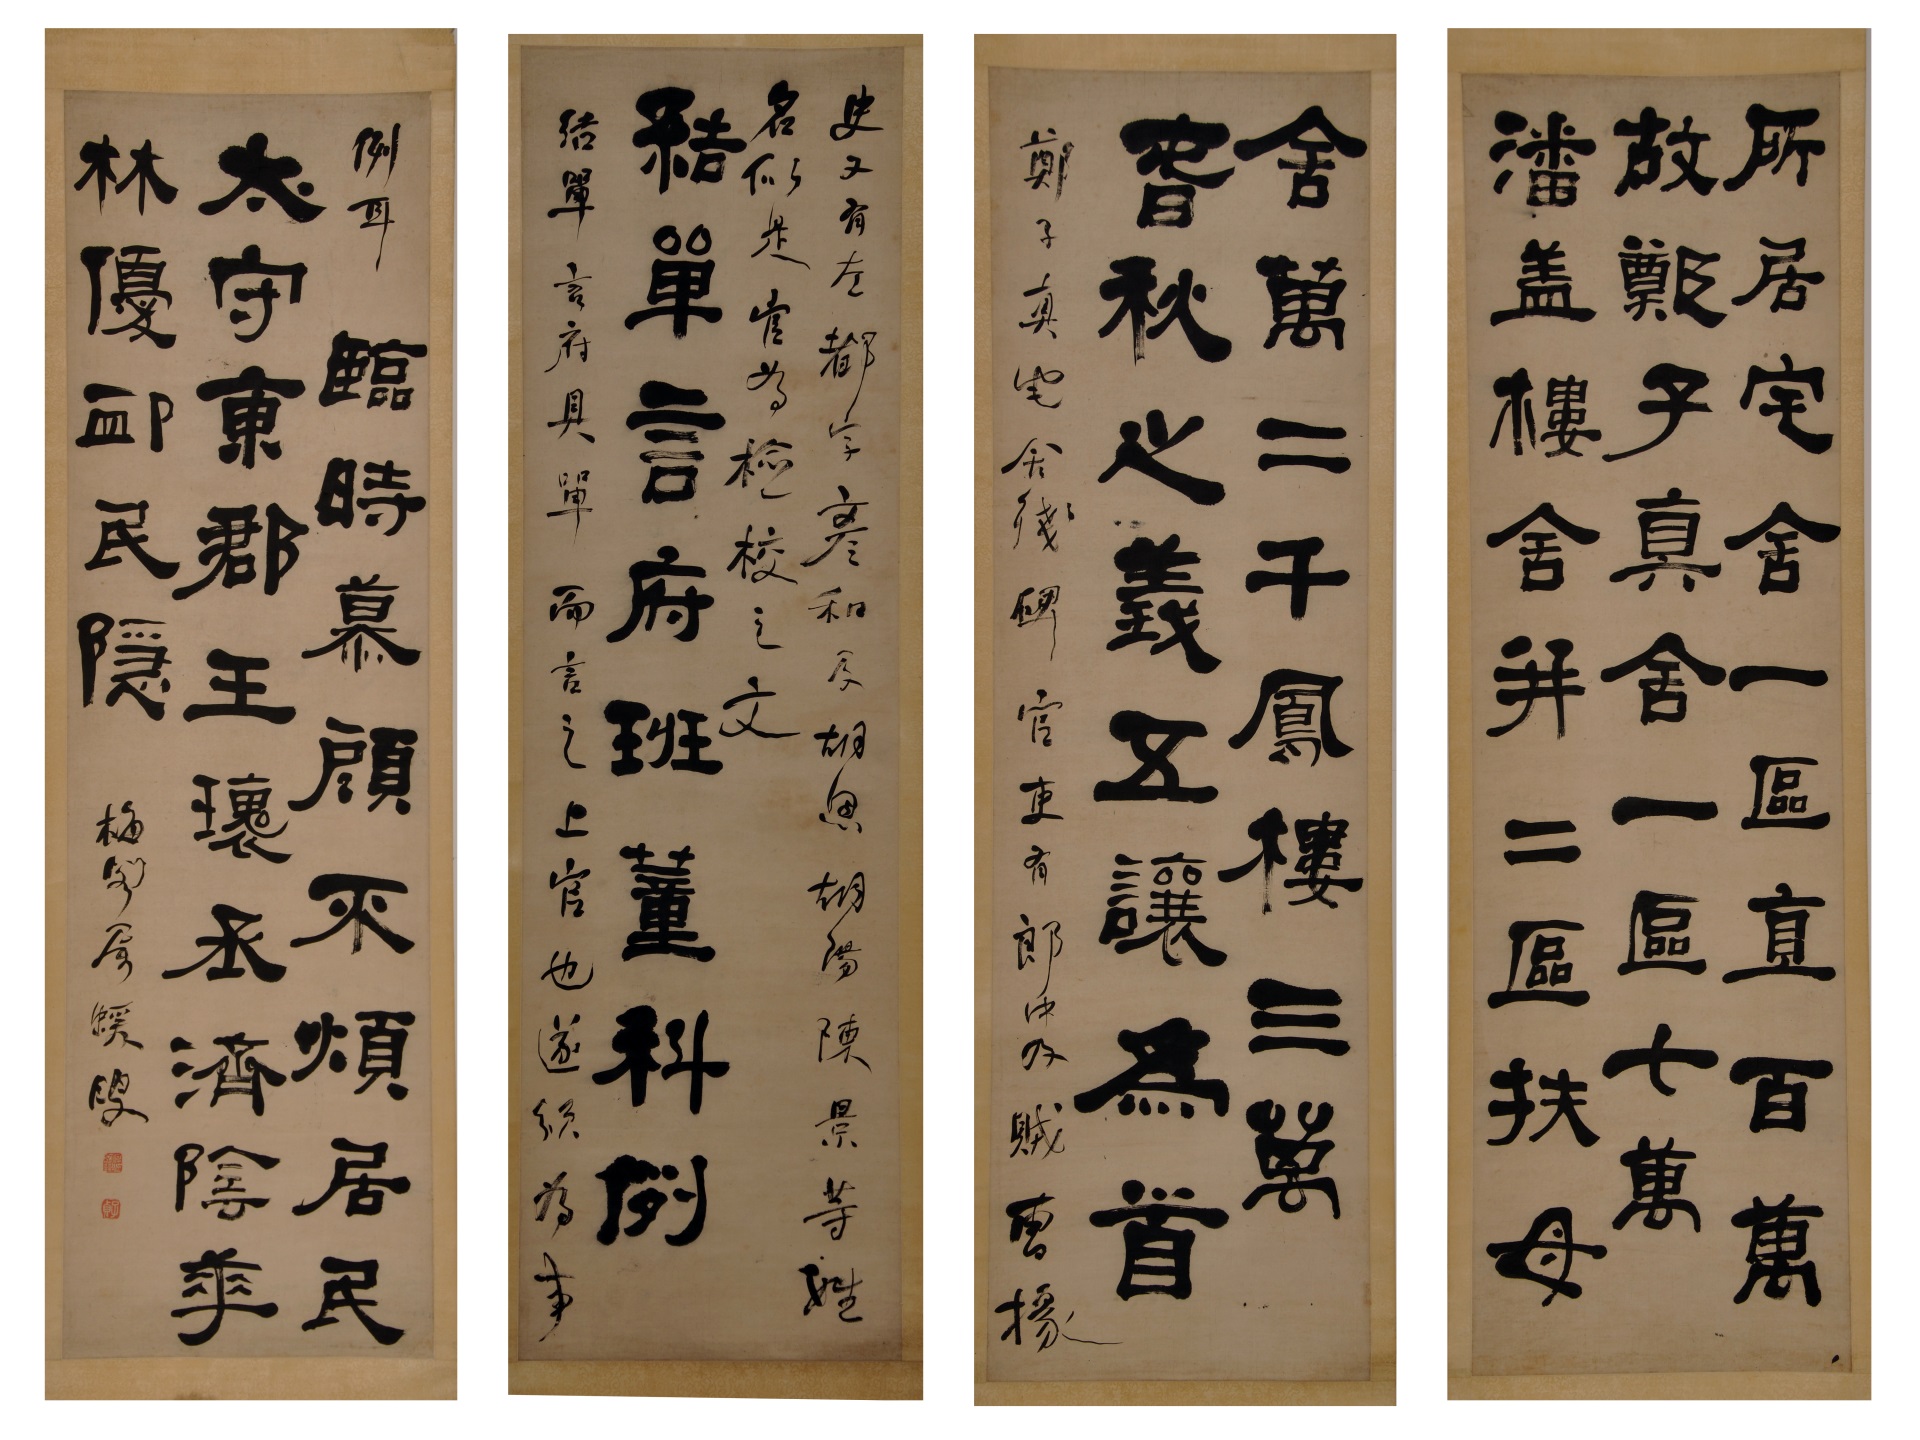 所居宅舍一區直百萬
故鄭子真舍一區七萬
潘盖樓舍并二區扶母
舍萬二千鳳樓三萬
春秋之義五讓為首
鄭子真宅舍殘碑官吏有郎中及賊曹掾
史又有左都字彥和及胡恩胡陽陳景等姓
名似是官為檢校之文
結單言府班董科例
結單言府具單而言之上官也遂領為事
例耳
臨時慕顧不煩居民
太守東郡王瓌丞濟陰華
林優卹民隱
叟